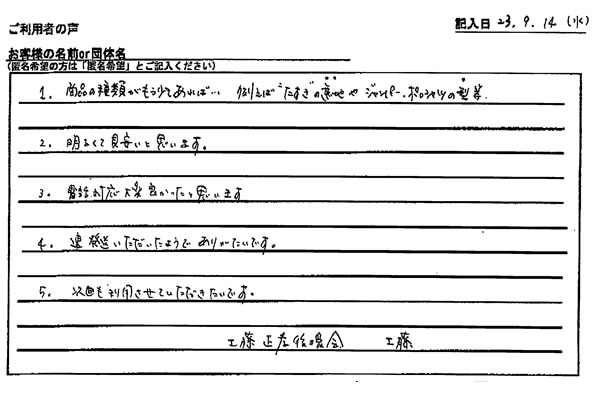 ご利用者の声
記入日 23.9.14(水)
お客様の名前or団体名
(匿名希望の方は「匿名希望」とご記入ください)
1. 商品の種類がもう少しあれば… 例えば"たすき"の生地や ジャンパー・ポロシャツの型等
2. 明るくて見安いと思います。
3. 電話対応大変良かったと思います
4. 速発送いただいたようでありがたいです。
5. 次回も利用させていただきたいです。
工藤正彦後援会 工藤